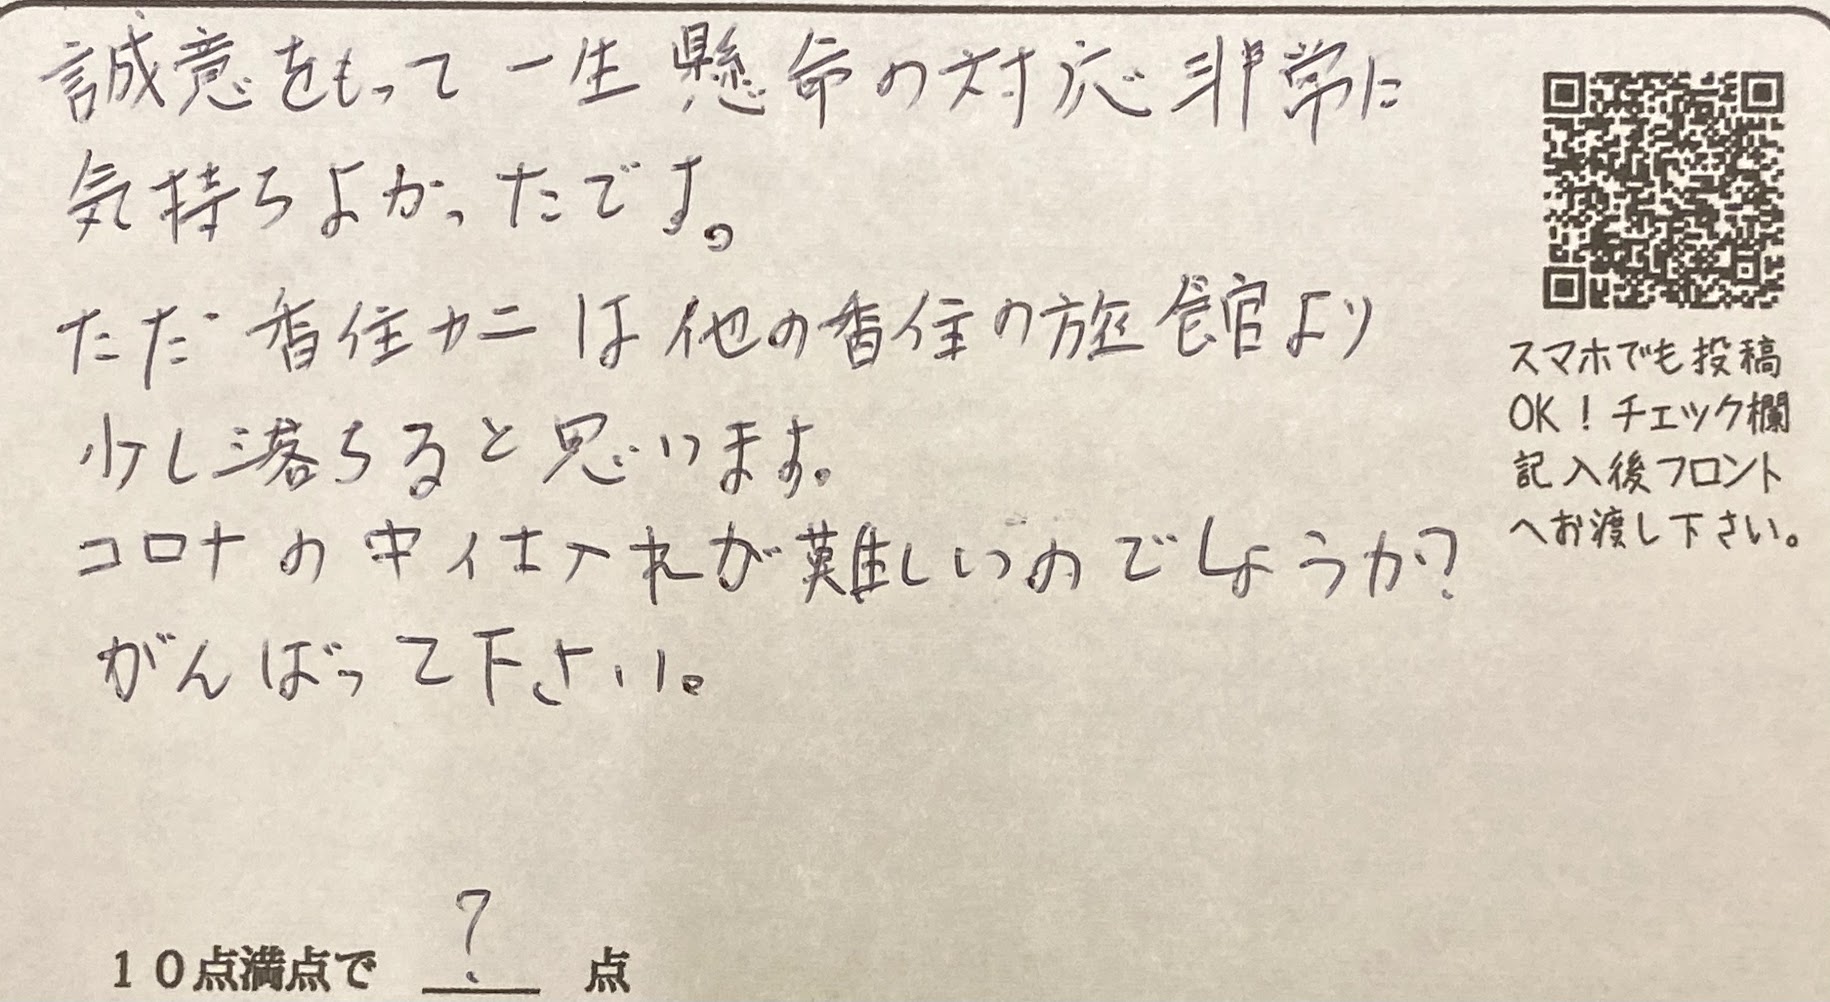 誠意をもって一生懸命の対応非常に
気持ちよかったです。
ただ香住カニは他の香住の旅館より
少し落ちると思います。
コロナの中仕入れが難しいのでしょうか?
がんばって下さい。
スマホでも投稿
OK!チェック欄
記入後フロント
へお渡し下さい。
10点満点で ? 点